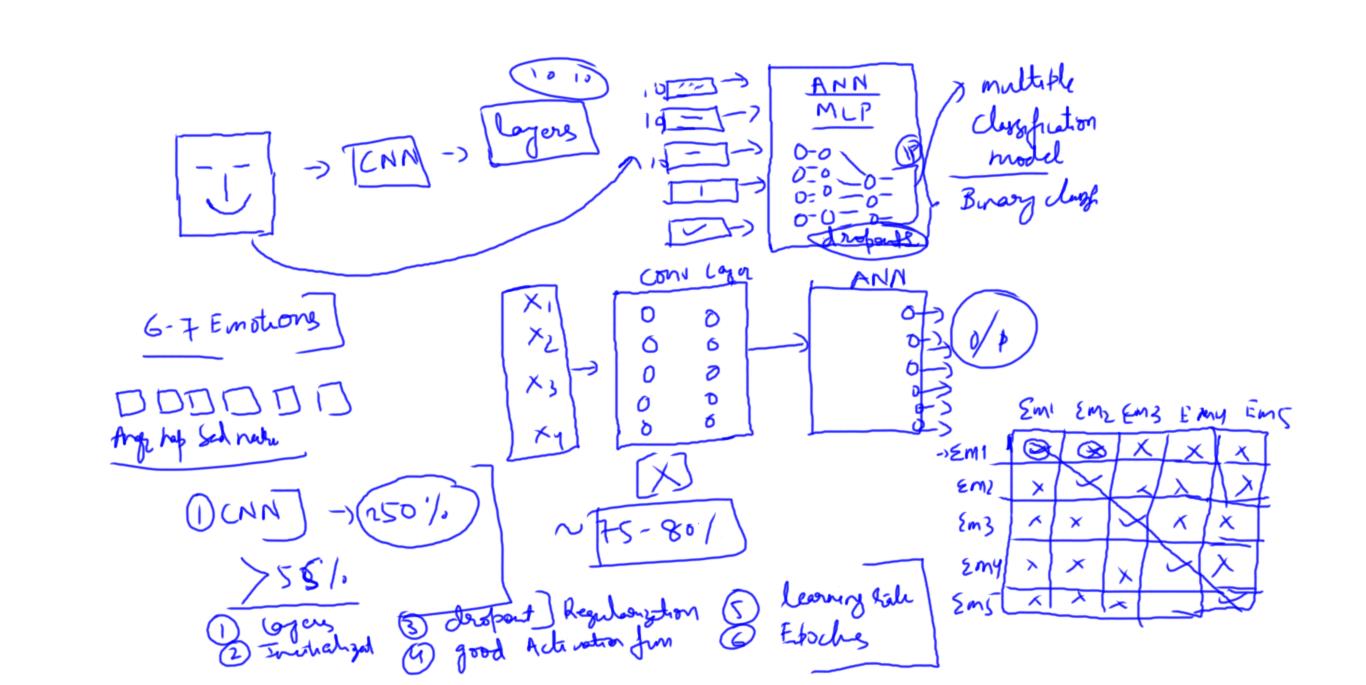 CNN
Layers
10 10
10
10
10
ANN
MLP
dropouts
multiple
classification
model
Binary class
6-7 Emotions
Angr hap Sad
X1
X2
X3
X4
Conv Layer
ANN
O/P
X
~ 75-80%
① CNN
>55%
① Layers
②
③ dropout ] Regularization
④ good Activation fun
⑤ learning rate
⑥ Epochs
Em1 Em2 Em3 Em4 Em5
Em1 X X X X
Em2 X ✓ X X X
Em3 X X ✓ X X
Em4 X X X ✓ X
Em5 X X X ✓